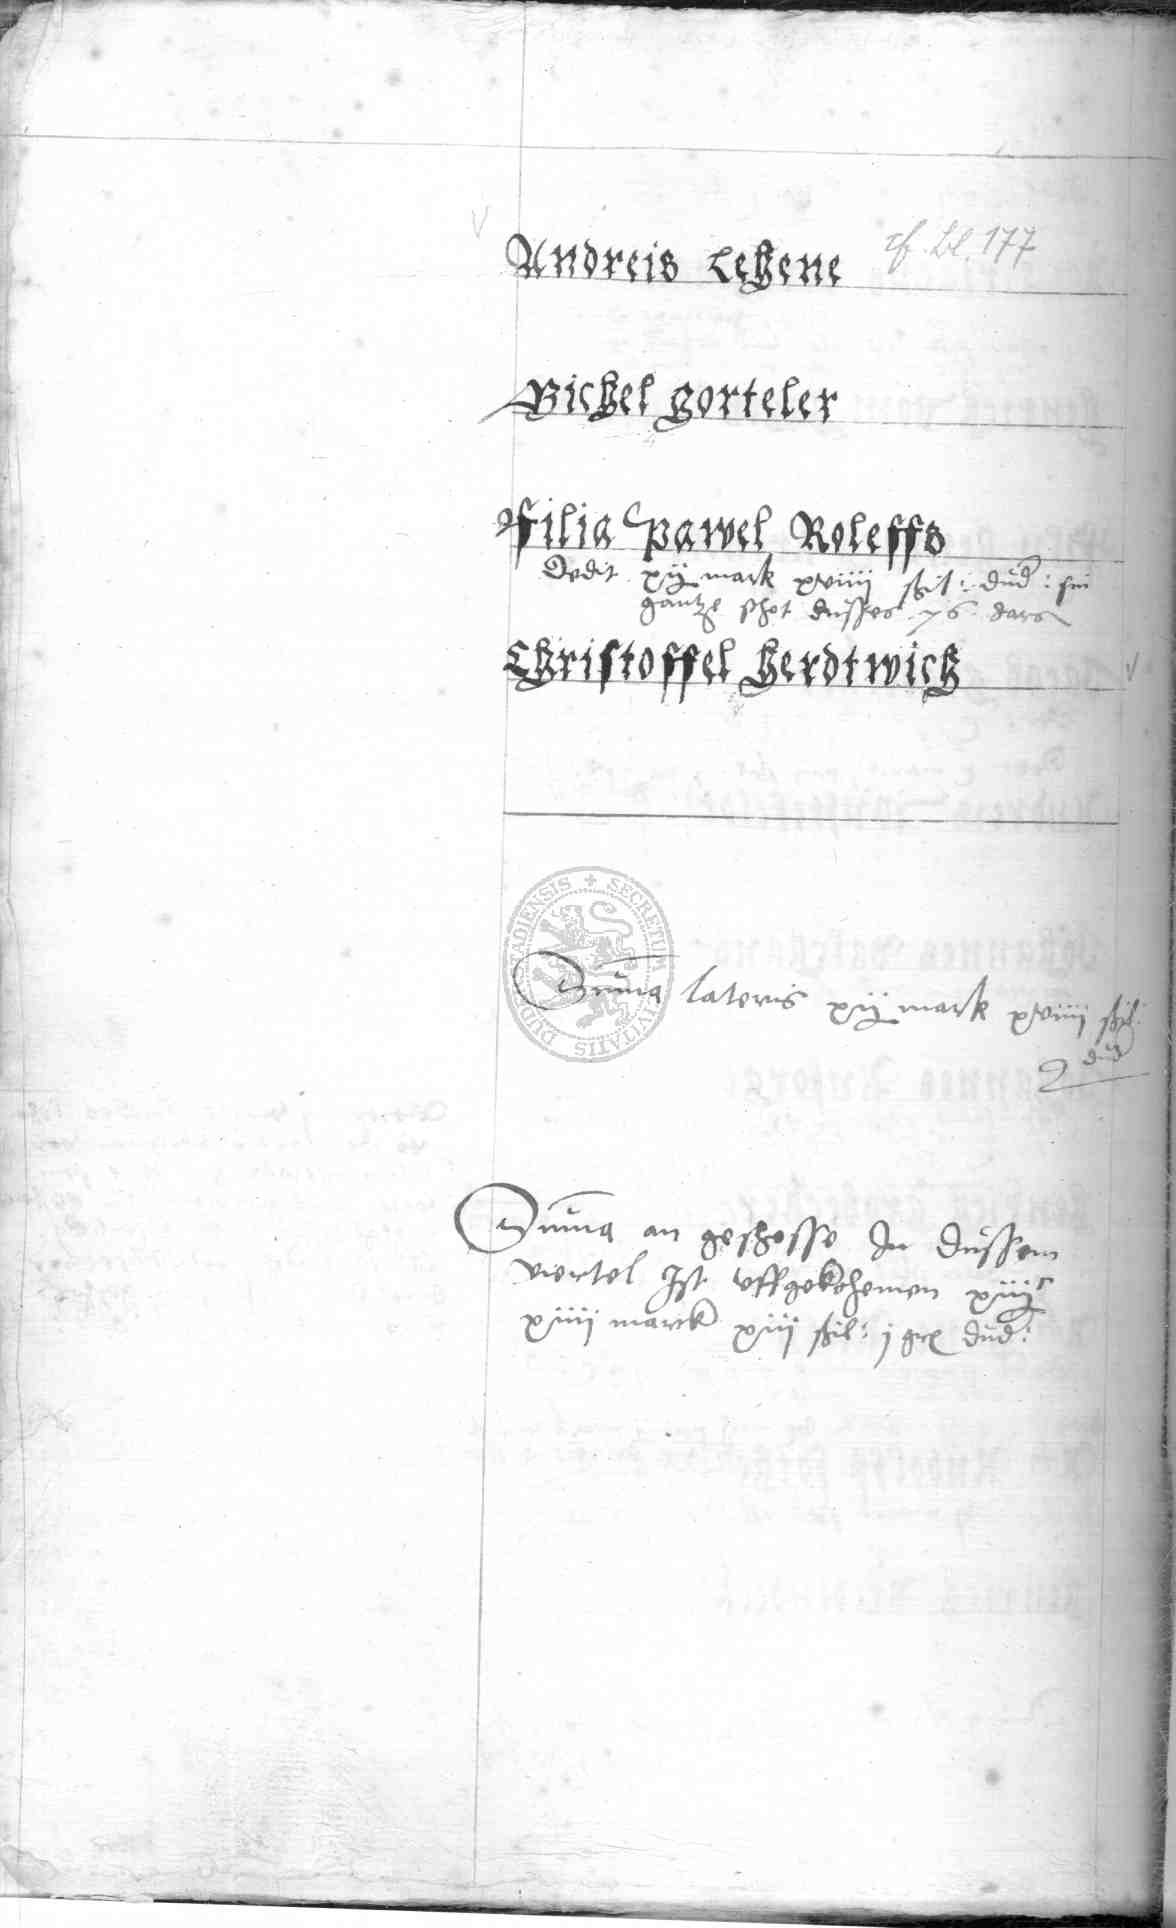 Andreis Lehene cf. Bl. 177
Michel gorteler
Filia Pawel Roleffs
Dedit xij mark xviiii ßil: dud: sin
gantze schot dusses 76 Jars
Christoffel herdtwich
SECRETUM CIVITATIS DUDERSTADIENSIS
Summa lateris xij mark xviiii ßil:
dud
Summa an geschosse In dussem
viertel Ist uffgekohemen xiijᶜ
xiiii marck xiij ßil: j gr dud: